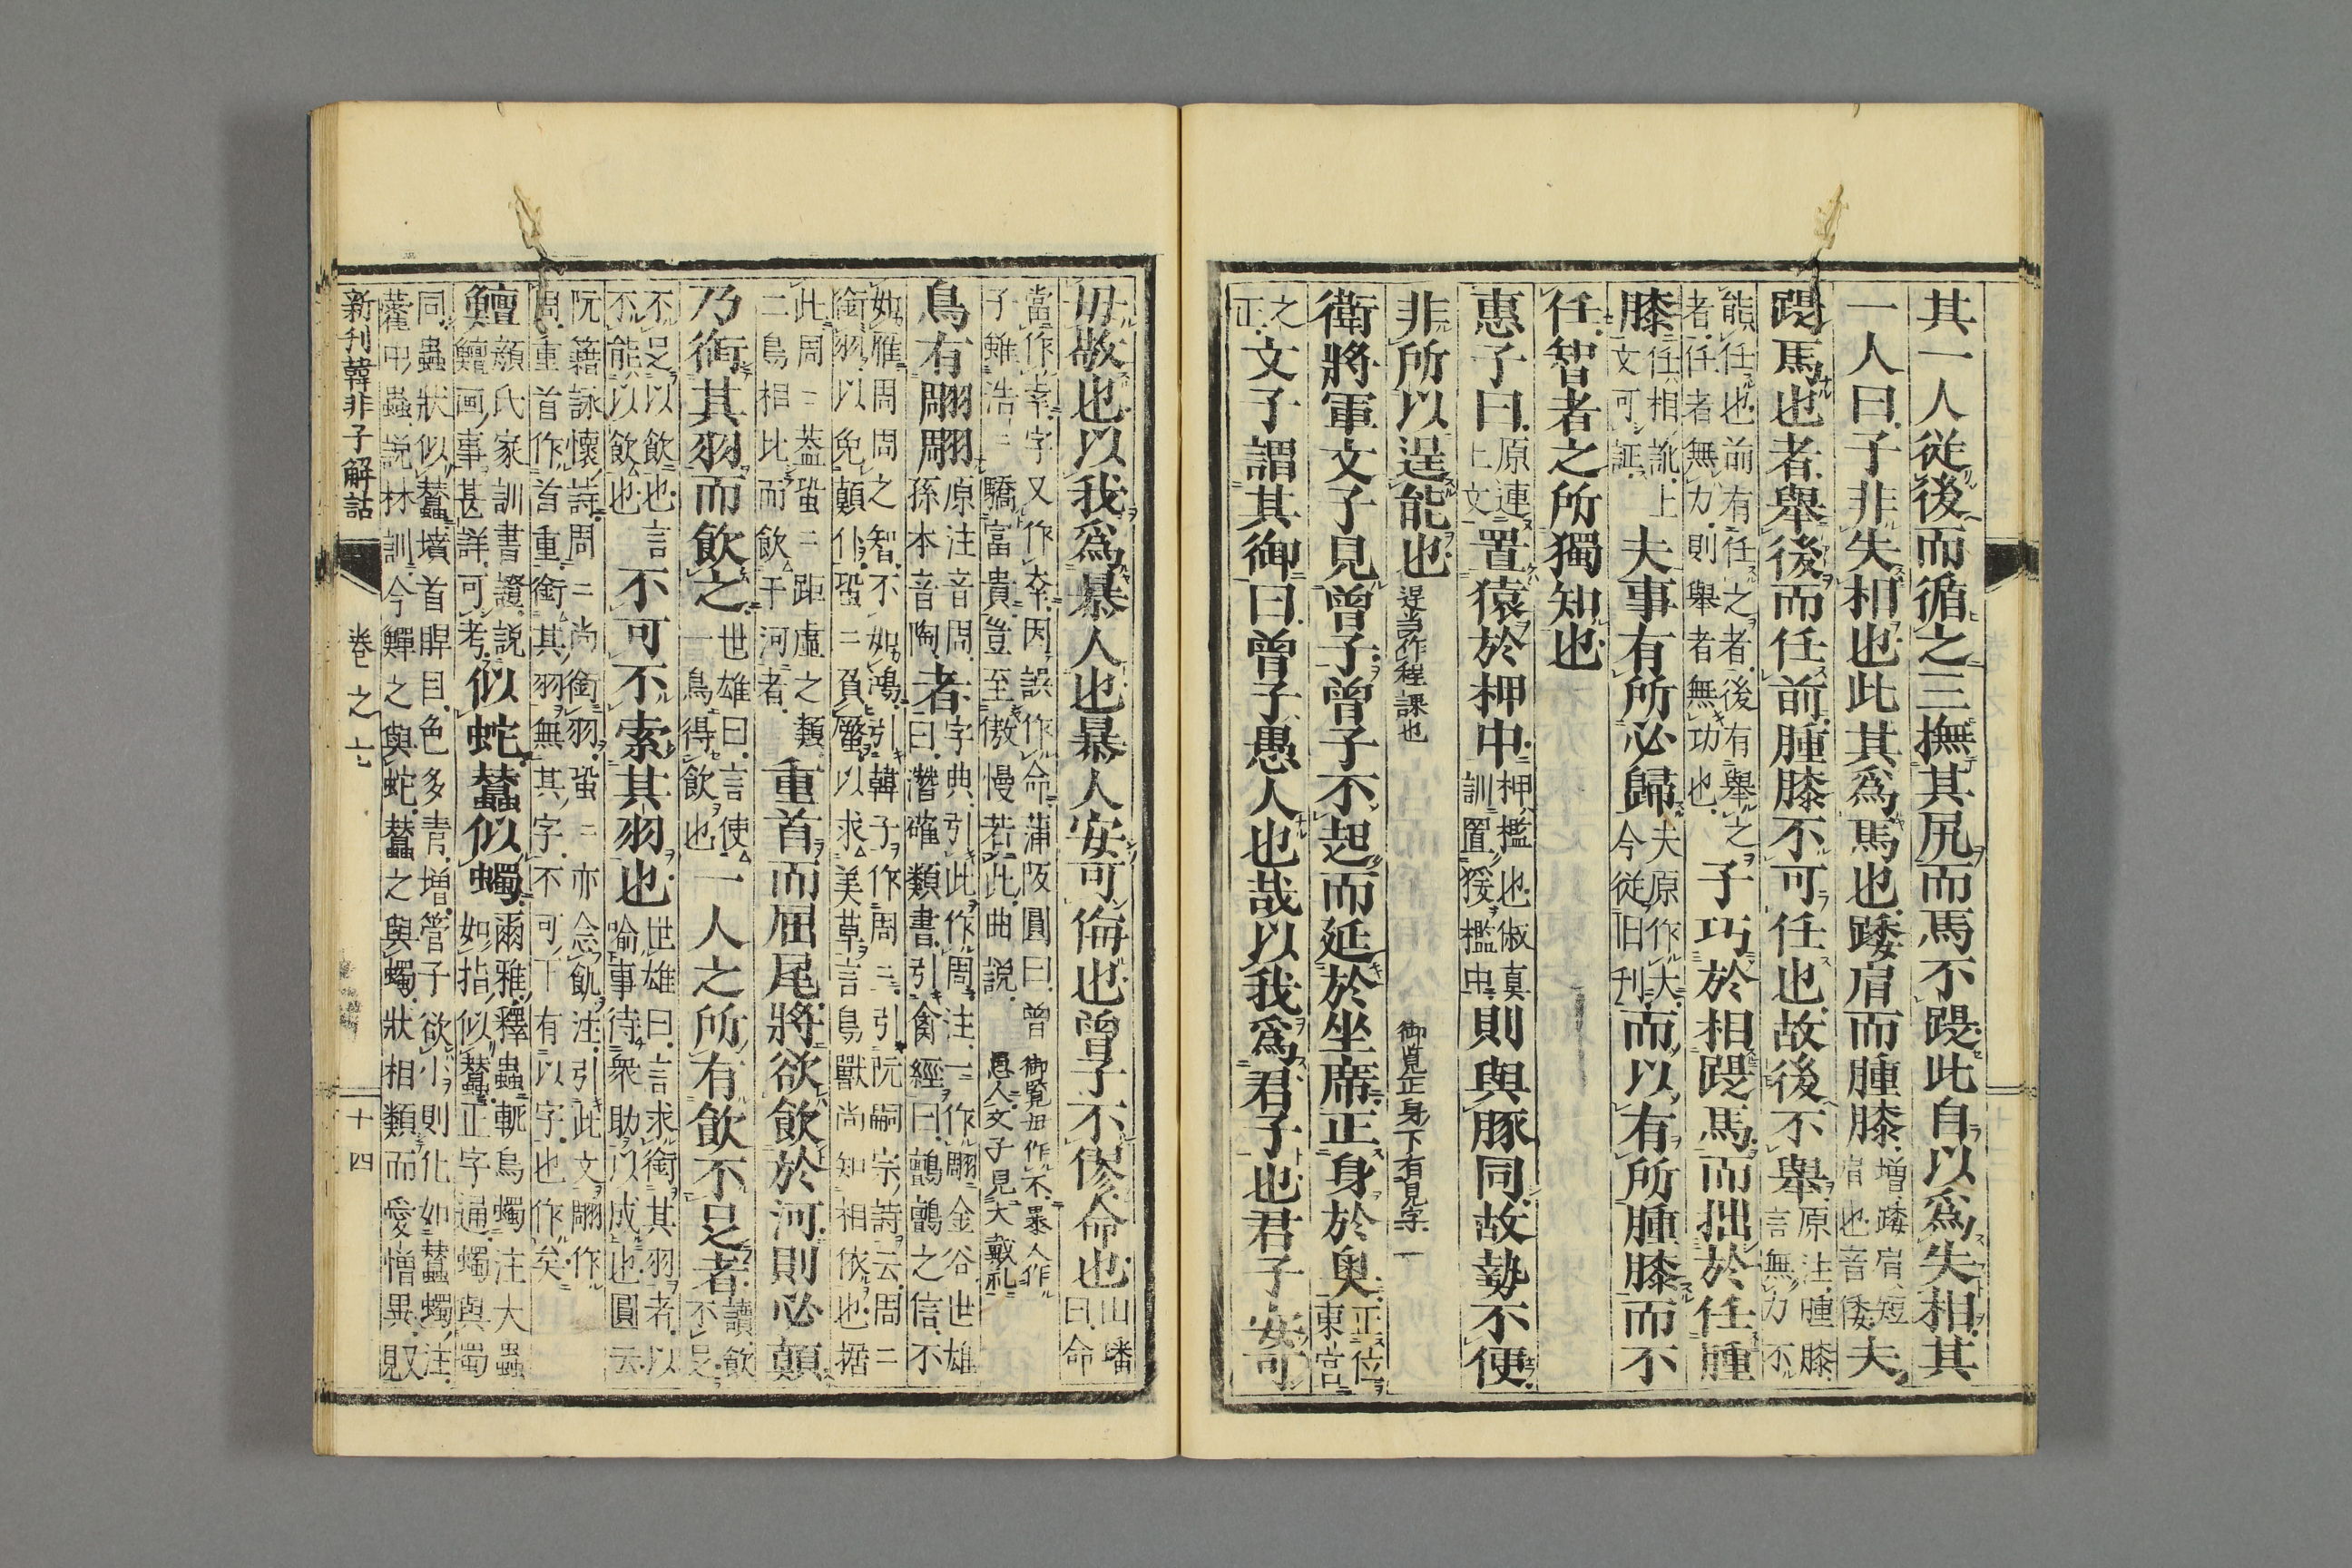 其一人從後而循之三撫其尻而馬不踶此自以爲失相其
一人曰子非失相也此其爲馬也踒肩而腫膝増踒肩短肩也音倭夫
踶馬也者舉後而任前腫膝不可任也故後不舉原注腫膝言無力不
能任也前有任之者後有舉之者任者無力則舉者無功也子巧於相踶馬而拙於任腫
膝任相訛上文可証夫事有所必歸夫原作大今從旧刊而以有所腫膝而不
任智者之所獨知也
惠子曰原連上文置猿於柙中柙檻也俶真訓置猨檻中則與豚同故勢不便
非所以逞能也逞当作程課也 御覧正身下有見字一
衛將軍文子見曾子曾子不起而延於坐席正身於奥正位東宮
之正文子謂其御曰曾子愚人也哉以我爲君子也君子安可
毋敬也以我爲暴人也暴人安可侮也曾子不僇命也山璠曰命
當作幸字又作㚔因誤作命蒲阪圓曰曾子雖浩二驕富貴豈至傲慢若此曲説御覧毋作不暴人作愚人文子見大戴礼
鳥有翢翢原注音周孫本音陶者字典引此作周注一作翢金谷世雄曰潛確類書引禽經曰鸛鸛之信不
如雁周周之智不如鴻引韓子作周二引阮嗣宗詩云周二銜羽以免顛仆蛩二負蟨以求美草言鳥獸尚知相依也據
此周二蓋蛩二距虚之類二鳥相比而飲于河者重首而屈尾將欲飲於河則必顛
乃銜其羽而飲之世雄曰言使一鳥得飲也一人之所有飲不足者讀飲不足
不足以飲也言不能以飲也不可不索其羽也世雄曰言求銜其羽者以喻事待衆助以成也圓云
阮籍詠懷詩周二尚銜羽蛩二亦念飢注引此文翢作周重首作首重銜其羽無其字不可下有以字也作矣
鱣顔氏家訓書證説鱣画事甚詳可考似蛇蠶似蠋爾雅釋蟲蚅烏蠋注大蟲如指似蠶正字通蠋與蜀
同蟲狀似蠶墳首脾目色多青増管子欲小則化如蠶蠋注藿中蟲説林訓今鱓之與蛇蠶之與蠋狀相類而愛憎異
新刊韓非子解詁
巻之六
十四